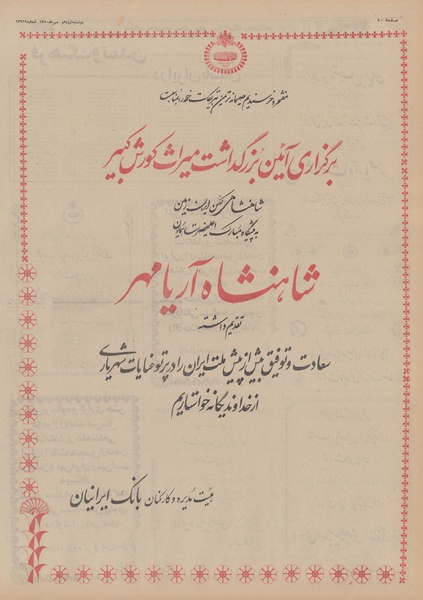 صفحه ۴۰
مفتخر و خرسندیم صمیمانه‌ترین تبریکات خود را بمناسبت
برگزاری آئین بزرگداشت میراث کورش کبیر
شاهنشاهی کهن ایران زمین
به پیشگاه مبارک اعلیحضرت همایون
شاهنشاه آریامهر
تقدیم داشته
سعادت و توفیق بیش از پیش ملت ایران را در پرتو عنایات شهریاری
از خداوند یگانه خواستاریم
هیئت مدیره و کارکنان بانک ایرانیان